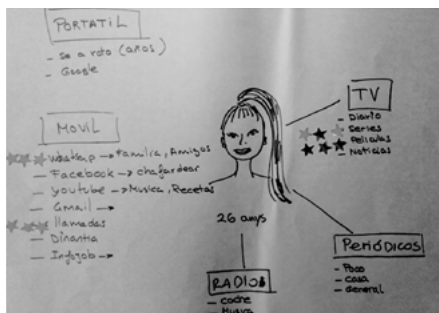 PORTATIL
- Se a roto (años)
- Google
MOVIL
Whatsap → Familia, Amigos
- Facebook → chafardear
- youtube → Musica, Recetas
- Gmail →
llamadas
- Dinantia
- Infojob →
26 anys
TV
- Diario
Series
Peliculas
- Noticias
PERIÓDICOS
- Poco
- casa
- General
RADIOS
- coche
- Musica